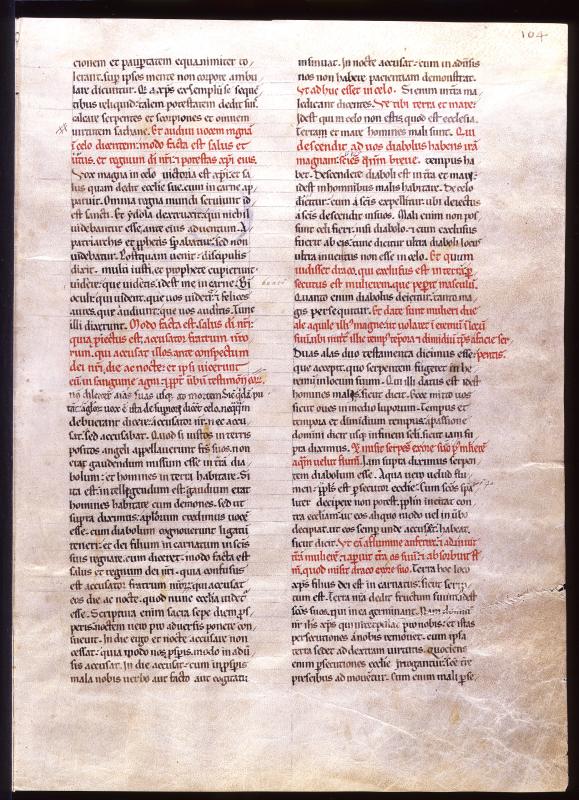 104
cionem et paup̄tatem equanimiter to
lerant. sup̄ ipsos mente non corpore ambu
lare dicuntur. Q̄ a xp̄s exemplū se seque
tibus reliquid: talem potestatem dedit sup̄
calcare serpentes et scorpiones et omnem
uirtutem sathane. Et audiui uocem mgnā
ī celo dicentem: modo facta est salus et
uirtus. et regnum dī nr̄ī: ⁊ potestas xp̄ī eius.
Vox magna in celo uictoria est xp̄ī: et sa
lus quam dedit ecclīe sue. cum in carne ap
paruit. Omnia regna mundi seruiunt id
est sancti. Et ydola dextruxit: qui nichil
uidebantur esse. ante eius aduentum. A
patriarchis et pp̄hetis sp̄abatur. sed non
uidebatur. Postquam uenit: discipulis
dixit. multi iusti. et prophete cupierunt
uidere: que uidetis. idest me in carne. Bi
oculi: qui uident. que uos uidetis: ⁊ felices
aures. que audiunt: que uos auditis. Tunc
illi dixerunt. Modo facta est. salus dī nr̄ī:
quia ꝓiectus est. accusator fratrum nr̄o
rum. qui accusat illos ante conspectum
dei nr̄ī. die ac nocte: et ipsi uicerunt
eū in sanguine agni: ⁊ ppt̄ ūbū testimōn
nō dilexert̄ aīas suas usq; ad mortem
debuerant dicere. accusator nr̄ī: ec accu
sat. sed accusabat. Quod si iustos in terris
positos angeli appellauerunt fr̄s suos. non
erat gaudendum missum esse in tr̄ā dia
bolum: et homines in terra habitare. Si
ita est: intellegendum est: gaudium erat
homines habitare cum demones. sed ut
supra diximus: apl̄orum credimus uocē
esse. cum diabolum cognouerunt ligatū
teneri: et dei filium in carnatum in sc̄is
suis regnare. cum diceret: modo facta est
salus et regnum dei nr̄ī. quia confusus
est accusator fratrum nr̄or̄: qui accusat
eos die ac nocte. quod nunc ecclīa uidet
esse. Scriptura enim sacra sepe diem: ꝓs
peris: noctem uero pro aduersis ponere con
sueuit. In die ergo et nocte accusare non
cessat: quia modo nos: ꝓsp̄is. modo in adū
sis accusat. In die accusat: cum in ꝓsp̄is
mala nobis uerbo aut facto aut cogitatu
insinuat. In nocte accusat: cum in adūsis
nos non habere pacientiam demonstrat.
Vt adhuc esset in celo. Si enim in tr̄ā ma
ledicunt dicentes. Ve tibi terra et mare:
Idest qui in celo non estis. quod est ecclesia.
Terram et mare homines mali sunt. Qm̄
descendit ad uos diabolus habens irā
magnam: sciēs qm̄ breue. tempus ha
bet. Descendere diaboli est in tr̄ā et mare:
idest in hominibus malis habitare. De celo
dicitur: cum a sc̄is expellitur: ubi deiectus
a sc̄is descendit in suos. Mali enim non pos
sunt celi fieri: nisi diabolo. ⁊ cum exclusus
fuerit ab eis: tunc dicitur ultra diaboli locus
ultra inuentus non esse in celo. Et quum
uidisset draco. qui exclusus est in terrā: ꝑ
secutus est mulierem. que peꝑit masculū.
Quanto enim diabolus deicitur: tanto ma
gis persequitur. Et date sunt mulieri due
ale aquile illi' magne: ut uolaret ī eremū ī locū
suū. ubi nutr̄ illic temp' tēpora ⁊ dimidiū tēp̄s a facie ser
pentis.
Duas alas duo testamenta dicimus esse:
que accepit. quo serpentem fugeret in he
remum in locum suum. Qm̄ illi datus est: idest
homines malis. sicut dicit. Ecce mitto uos
sicut oues in medio luporum. Tempus et
tempora et dimidium tempus: a passione
domini dicit usq; in finem scl̄i. sicut iam su
pra diximus. Et misit serpēs ex ore suo p' mlierē
aqm̄ uelut flumē. Iam supra diximus serpen
tem diabolum esse. Aquā uero uelud flu
men: pp̄ls est ꝑsecutor ecclīe: cum sc̄īs spā
liter decipere non potest: pp̄lm incitat con
tra ecclīam: ut eos aliquo modo uel in ūbo
decipiat. ut eos semp̄ unde accuset: habeat.
sicut dicit. Vt eā a flumine auferret: ⁊ adiuuit
tr̄ā mulierē: ⁊ aperuit tr̄ā os suū: ⁊ absorbuit flu
m̄. quod misit draco ex ore suo. Terra hoc loco
xp̄s filius dei est in carnatus: sicut scrip
tum est. Terra nr̄ā dedit fructum suum: idest
sc̄ōs suos. qui in ea germinant. Nam dominus
nr̄ ihs xp̄s. qui interpellat pro nobis: et istas
persecutiones a nobis remouet. cum ipsa
terra sedet ad dexteram uirtutis. quociens
enim ꝑsecutiones ecclīe irrogantur: sc̄ōr̄
precibus ad mouetur. Cum enim mali ꝑse